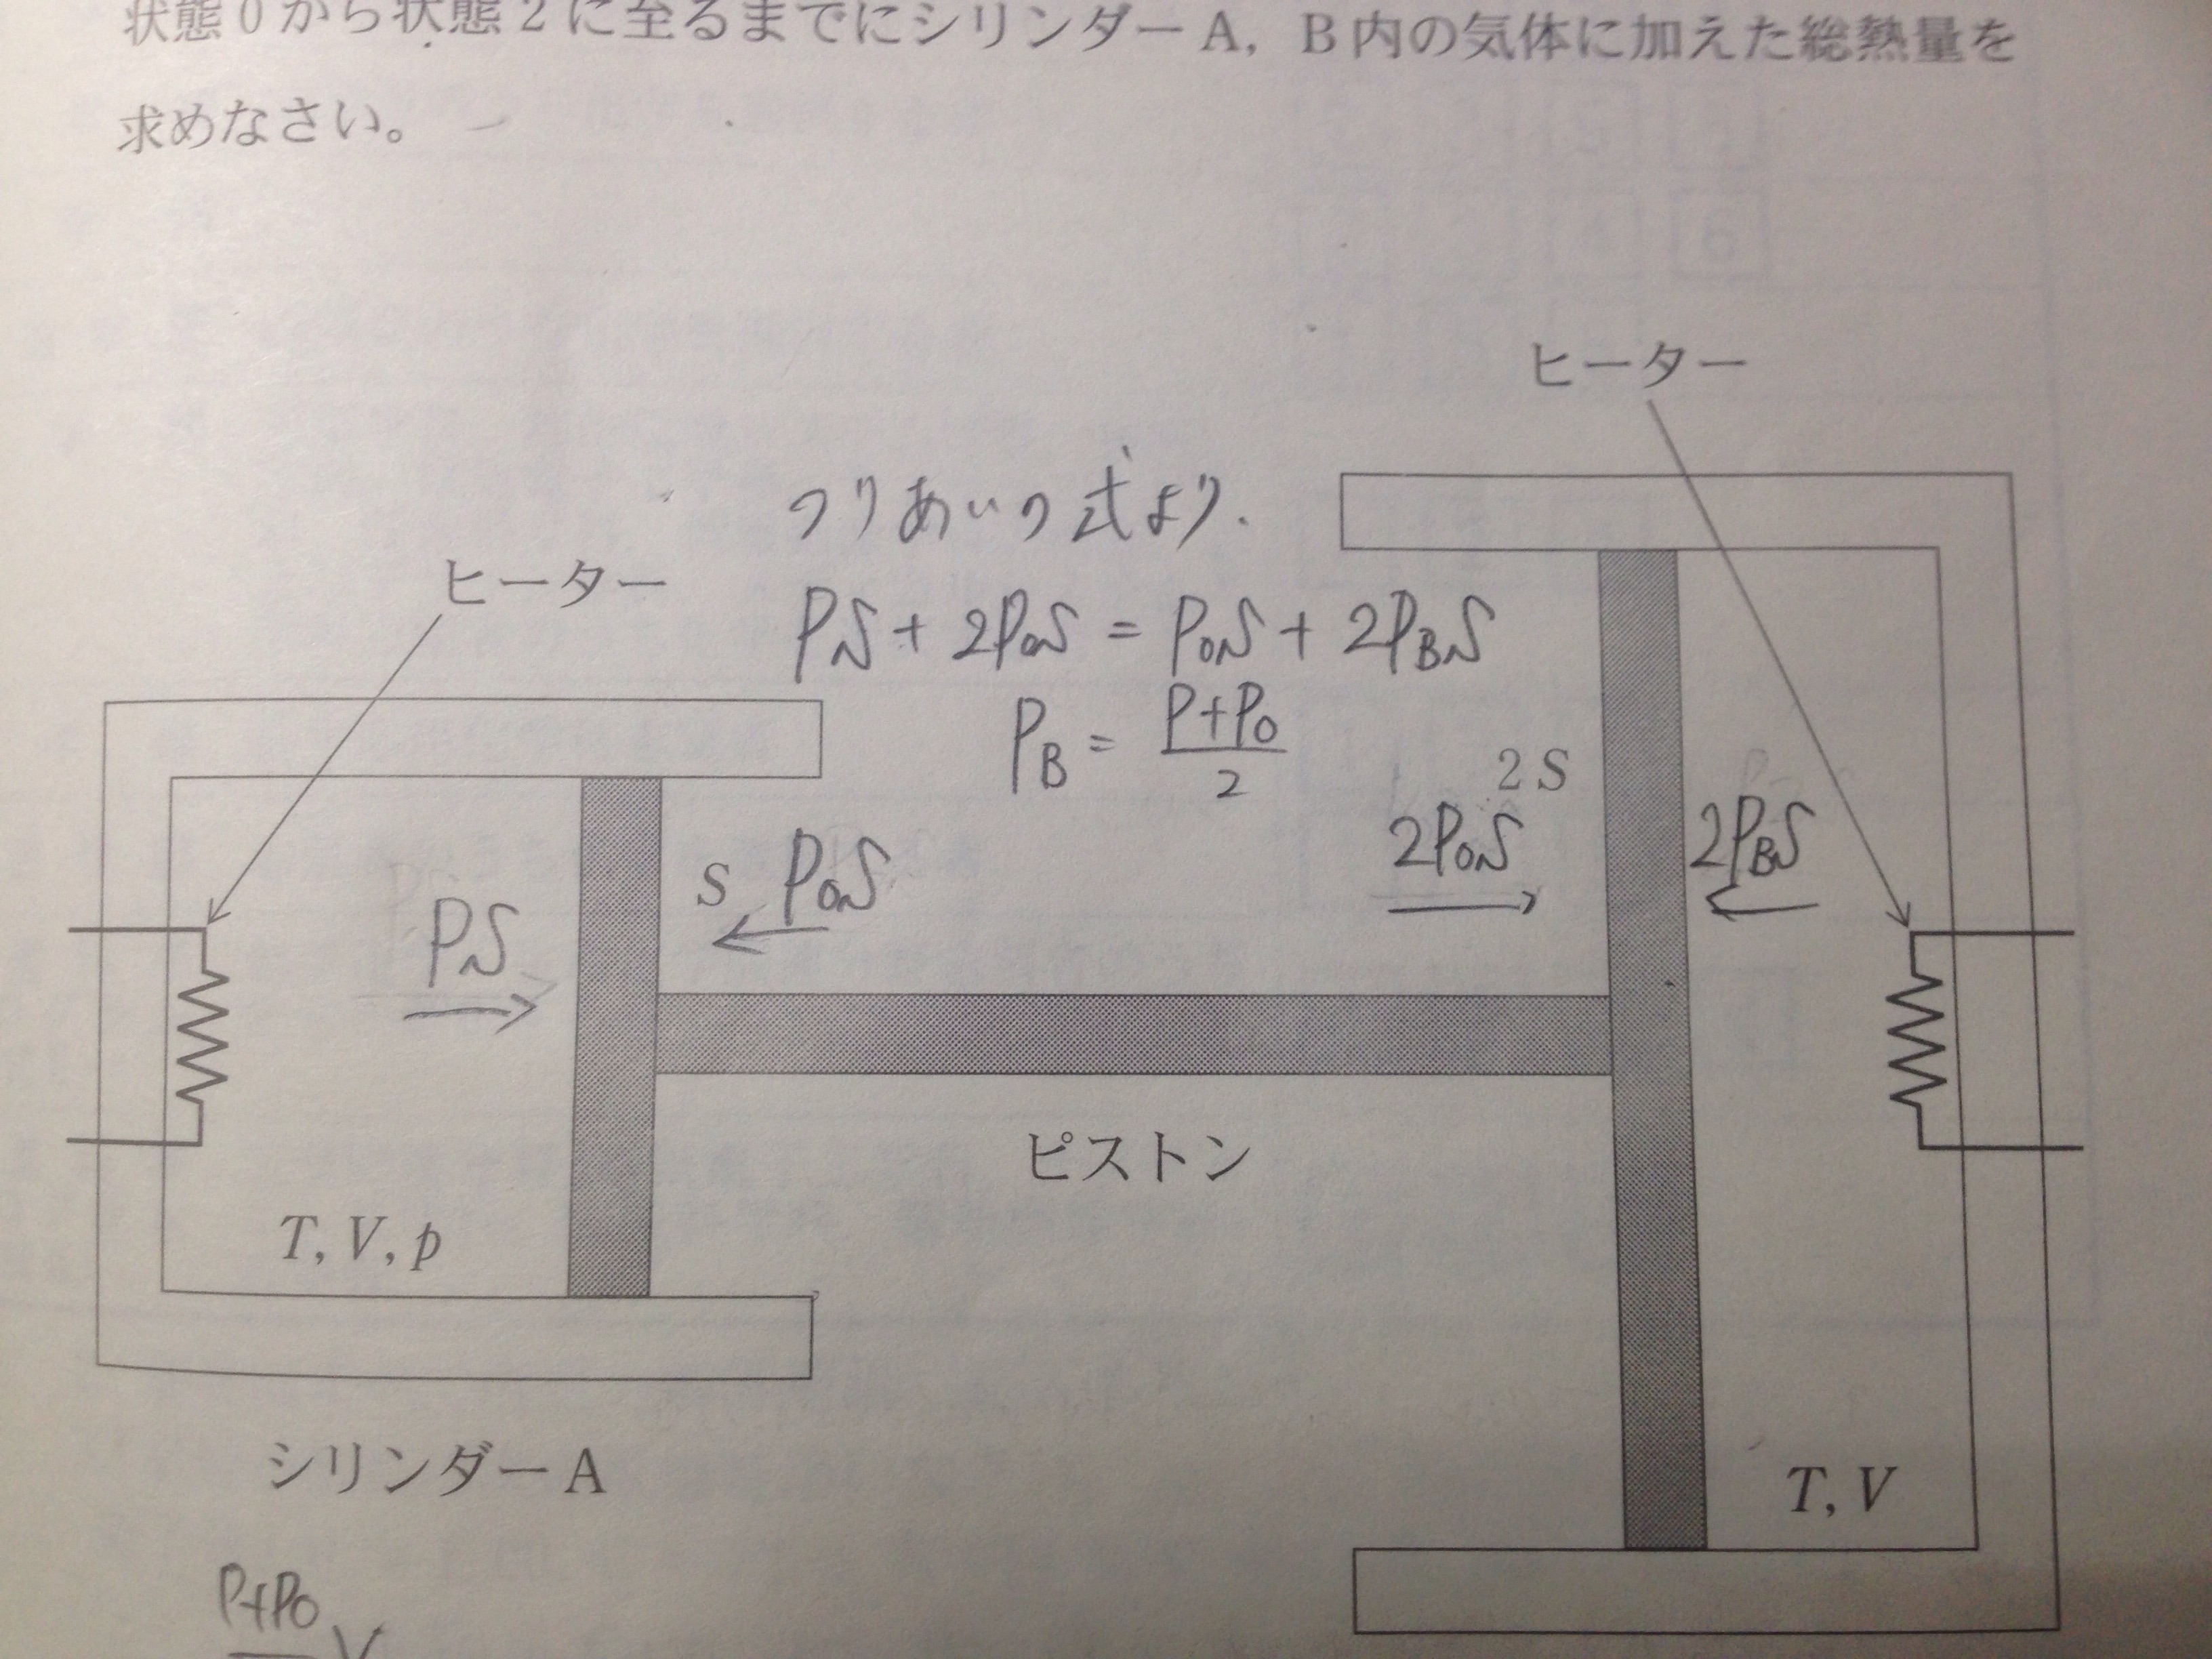 状態0から状態2に至るまでにシリンダーA，B内の気体に加えた総熱量を
求めなさい。
ヒーター
つりあいの式より.
ヒーター
PS + 2P₀S = P₀S + 2P_BS
P_B = (P+P₀)/2
2S
2P₀S
2P_BS
S
P₀S
PS
ピストン
T, V, p
シリンダーA
T, V
P+P₀
V